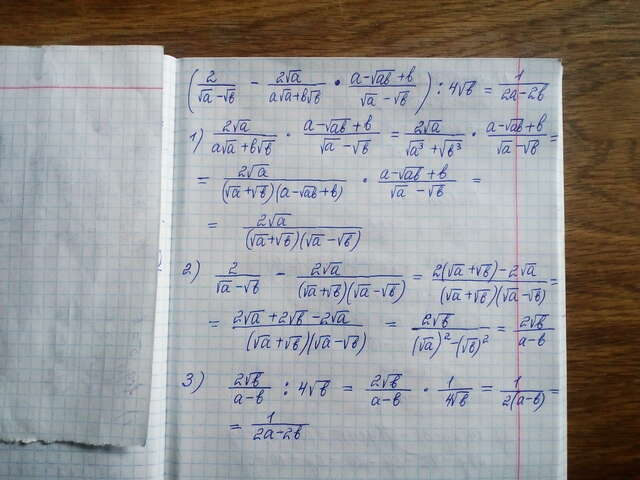 (2/(√a-√b) - 2√a/(a√a+b√b) • (a-√ab+b)/(√a-√b)) : 4√b = 1/(2a-2b)
1) 2√a/(a√a+b√b) · (a-√ab+b)/(√a-√b) = 2√a/(√a³+√b³) · (a-√ab+b)/(√a-√b) =
= 2√a/((√a+√b)(a-√ab+b)) • (a-√ab+b)/(√a-√b) =
= 2√a/((√a+√b)(√a-√b))
2) 2/(√a-√b) - 2√a/((√a+√b)(√a-√b)) = (2(√a+√b)-2√a)/((√a+√b)(√a-√b)) =
= (2√a+2√b-2√a)/((√a+√b)(√a-√b)) = 2√b/((√a)²-(√b)²) = 2√b/(a-b)
3) 2√b/(a-b) : 4√b = 2√b/(a-b) · 1/(4√b) = 1/(2(a-b)) =
= 1/(2a-2b)